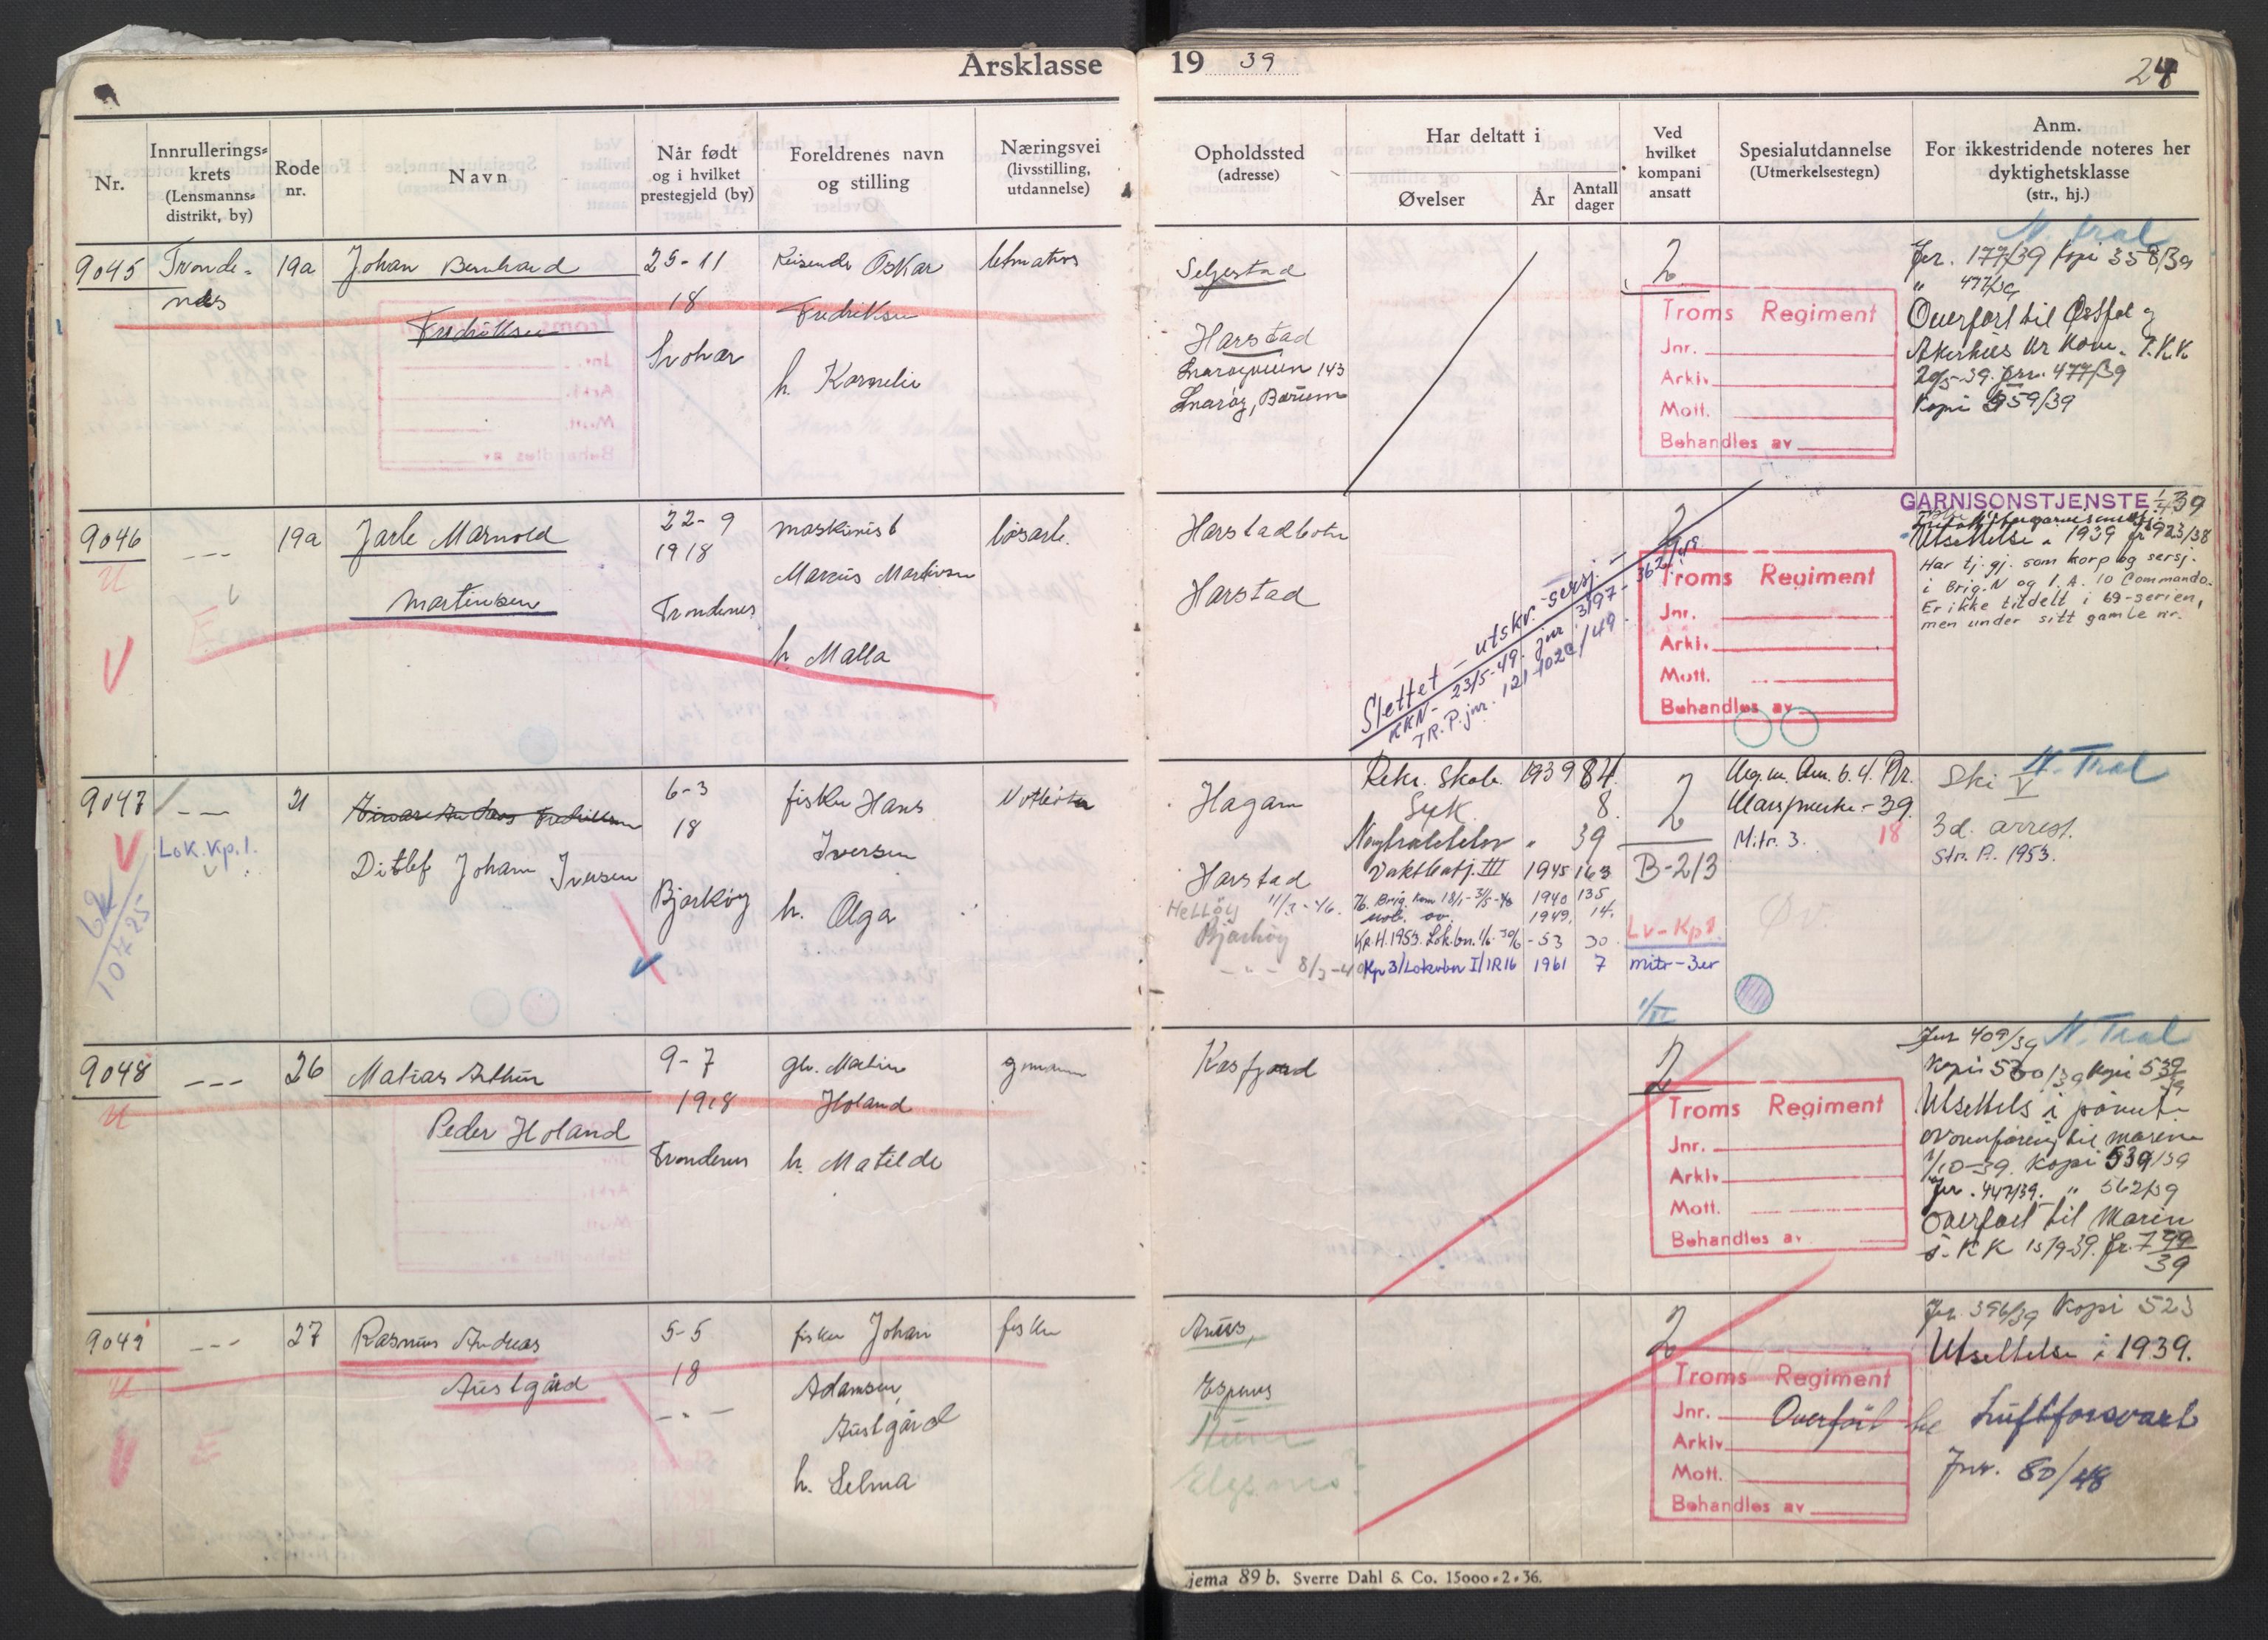 Årsklasse 19 39
24
Nr.
Innrullerings-
krets
(Lensmanns-
distrikt, by)
Rode
nr.
Navn
Når født
og i hvilket
prestegjeld (by)
Foreldrenes navn
og stilling
Næringsvei
(livsstilling,
utdannelse)
Opholdssted
(adresse)
Har deltatt i
Øvelser
År
Antall
dager
Ved
hvilket
kompani
ansatt
Spesialutdannelse
(Utmerkelsestegn)
Anm.
For ikkestridende noteres her
dyktighetsklasse
(str., hj.)
9045
Tronde-
nes
19a
Johan Bernhard
Fredriksen
25-11
18
Svolvær
Reisende Oskar
Fredriksen
h. Kornelie
Seljestad
Harstad
Snarøyveien 143
Snarøy, Bærum
2
Troms Regiment
Jnr.
Arkiv
Mott.
Behandles av
N. Tral
Jnr. 177/39 Kopi 358/39
" 477/39
Overført til Østfol og
Akerhus Kr Kom.
20/5-39. Jnr. 477/39
Kopi 959/39
9046
---
19a
Jarle Marnold
Martinsen
22-9
1918
Trondenes
maskinist
Marius Martinsen
h. Malla
løsarb.
Harstadbotn
Harstad
Slettet - utskr. sersj. -
KKN- 23/5-49. jnr. 3197-362/49
TR. P. jnr. 121-1020/49.
2
Troms Regiment
Jnr.
Arkiv
Mott.
Behandles av
GARNISONSTJENSTE 1/4 39
Utsettelse i 1939 jr 923/38
Har tj. gj. som korp og sersj.
i Brig. N og I. A. 10 Commando.
Er ikke tildelt i 69-serien,
men under sitt gamle nr.
9047
---
Lok. Kp. 1.
62
10425
21
Ditlef Johan Iversen
6-3
18
Bjarkøy
fisker Hans
Iversen
h. Olga
Hagan
Harstad
Helløy 11/3-46.
Bjarkøy
- " - 8/3-40
Rekr. Skole 1939 84.
Syk. 8.
Nøytralitetsv " 39
Vaktbatj. III 1945 163
Tb. Brig. Kom 18/1-31/5-40 1940 135
mob. øv. 1949. 14.
Kp. H. 1953. Lok.bn. 1/6-30/6 -53 30
Kp 3/Lokvbn I/IR16 1961 7
2
2
B-2/3
Lv-Kp1.
mitr-3er
Marsjmerke -39.
Mitr. 3. 18
Ski V
N. Tral
3d. arrest.
Str. A. 1953.
9048
---
26
Matias Arthur
Peder Holand
9-7
1918
Trondenes
gbr. Martin
Holand
h. Matilde
Kasfjord
2
Troms Regiment
Jnr.
Arkiv
Mott.
Behandles av
Jnr 409/39 N. Tral
Kopi 500/39 Kopi 539/39
Utsettels i påvente
overføring til marine
1/10-39. Kopi 539/39
Jnr. 447/39. " 562/39
Overført til Marin
s. KK 15/9-39. Jr. 799/39
9049
---
27
Rasmus Andreas
Austgård
5-5
18
- " -
fisker Johan
Adamsen
Austgård
h. Selma
fisker
Espenes
2
Troms Regiment
Jnr.
Arkiv
Mott.
Behandles av
Jnr. 396/39 Kopi 523
Utsettelse i 1939.
Overført til Luftforsvart
Jnr. 80/48
jema 89 b. Sverre Dahl & Co. 15000-2-36.